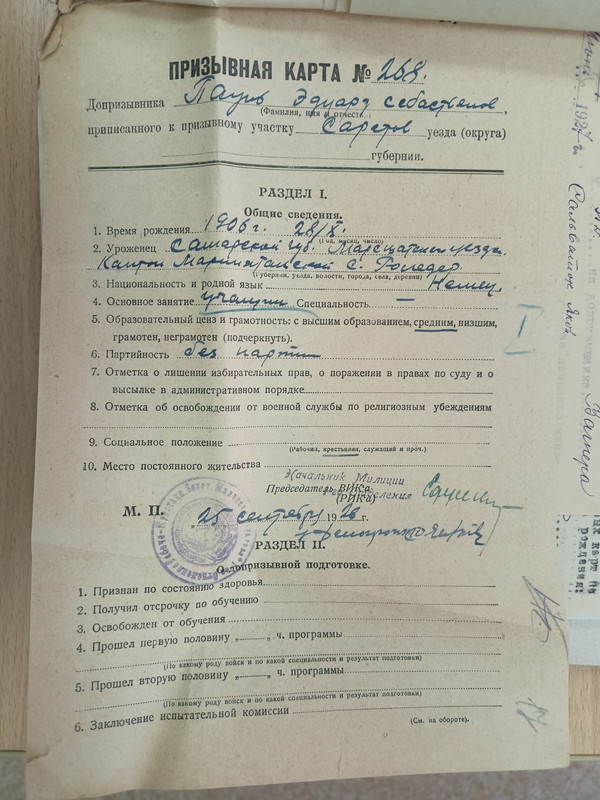 ПРИЗЫВНАЯ КАРТА № 268.
Допризывника Пауль Эдуард Себастьянов,
(Фамилия, имя и отчество)
приписанного к призывному участку Саратов уезда (округа)
губернии.
РАЗДЕЛ I.
Общие сведения.
1. Время рождения 1906 г. 28/X.
(Год, месяц, число)
2. Уроженец Самарской губ.
Кантон Мариентальский с.
(Губерния, уезда, волости, города, села, деревни)
3. Национальность и родной язык Немец.
4. Основное занятие учащийся Специальность —
5. Образовательный ценз и грамотность: с высшим образованием, средним, низшим,
грамотен, неграмотен (подчеркнуть).
6. Партийность без партии
7. Отметка о лишении избирательных прав, о поражении в правах по суду и о
высылке в административном порядке
8. Отметка об освобождении от военной службы по религиозным убеждениям
9. Социальное положение
(Рабочий, крестьянин, служащий и проч.)
10. Место постоянного жительства
Начальник Милиции
Председатель ВИКа
(РИКа)
М. П. 25 сентября 1926 г.
РАЗДЕЛ II.
О допризывной подготовке.
1. Признан по состоянию здоровья
2. Получил отсрочку по обучению
3. Освобожден от обучения
4. Прошел первую половину „ — “ ч. программы
(По какому роду войск и по какой специальности и результат подготовки)
5. Прошел вторую половину „ — “ ч. программы
(По какому роду войск и по какой специальности и результат подготовки)
6. Заключение испытательной комиссии
(См. на обороте).
1927 г.
Вагнера